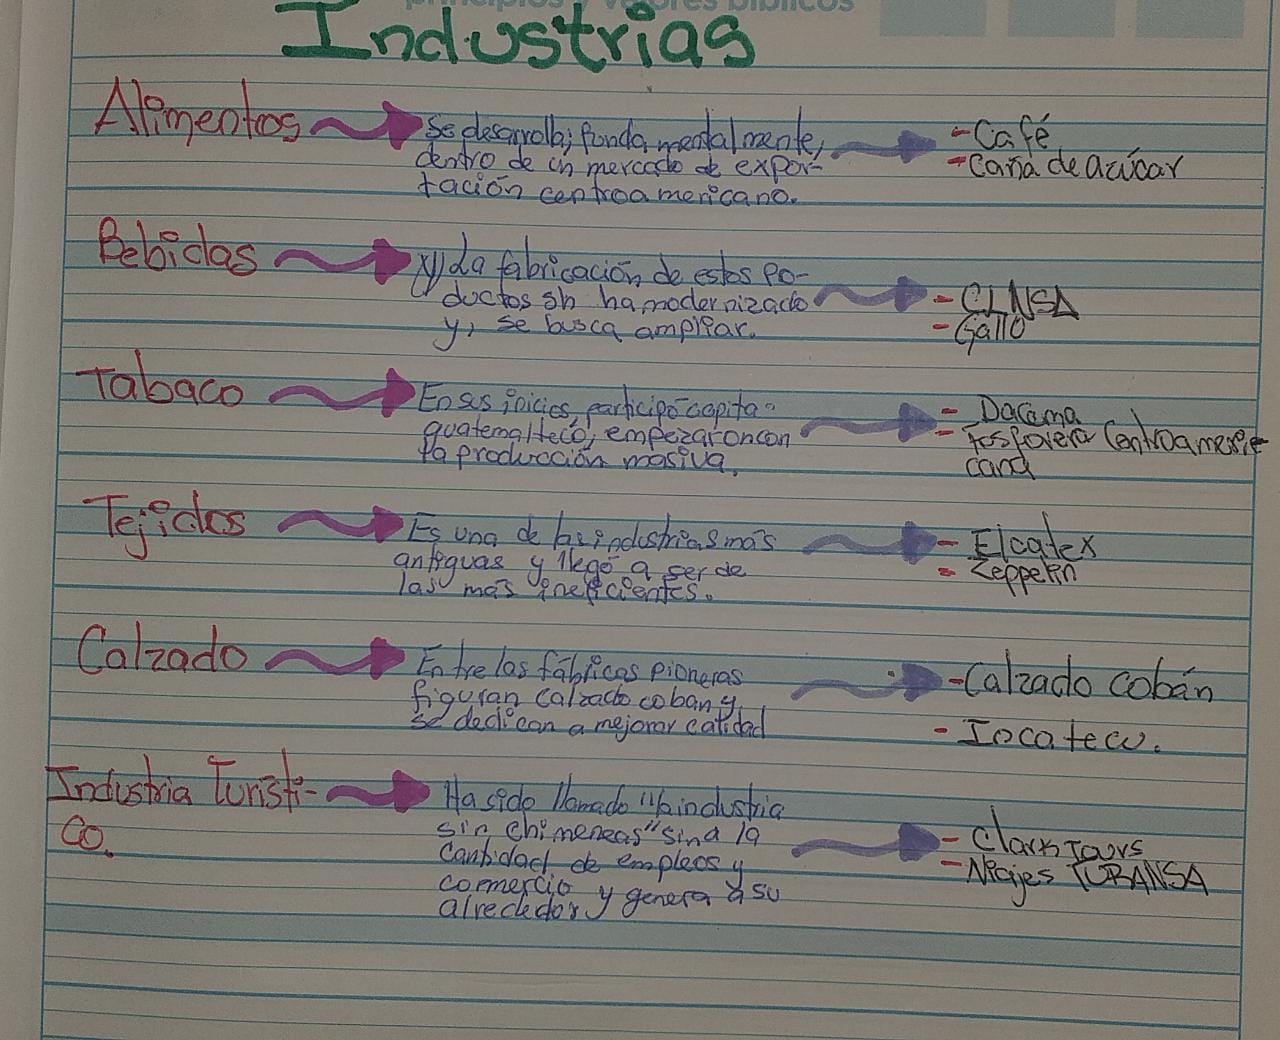 principios y valores bíblicos
Industrias
Alimentos
Se desarrolla, fundamentalmente,
dentro de un mercado de expor-
tación centroamericano.
- Café
- Caña de azúcar
Bebidas
La fabricación de estos po-
ductos sh ha modernizado
y, se busca ampliar.
- CLNSA
- Gallo
Tabaco
En sus inicios, participó capita-
guatemalteco, empezaron con
la producción masiva.
- Dacama
- Fosforera Centroameri-
cana
Tejidos
Es una de las industrias más
antiguas y llegó a ser de
las más ineficientes.
- Elcatex
- Zeppelin
Calzado
Entre las fábricas pioneras
figuran calzado coban y,
se dedican a mejorar calidad
- Calzado cobán
- Incatecu.
Industria Turísti-
co.
Ha sido llamado "la industria
sin chimeneas" sina la
cantidad de empleos y
comercio y genera a su
alrededor
- Clark Tours
- Viajes TURANSA